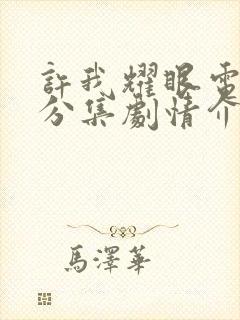 許我耀眼電
分集劇情介
馬澤華